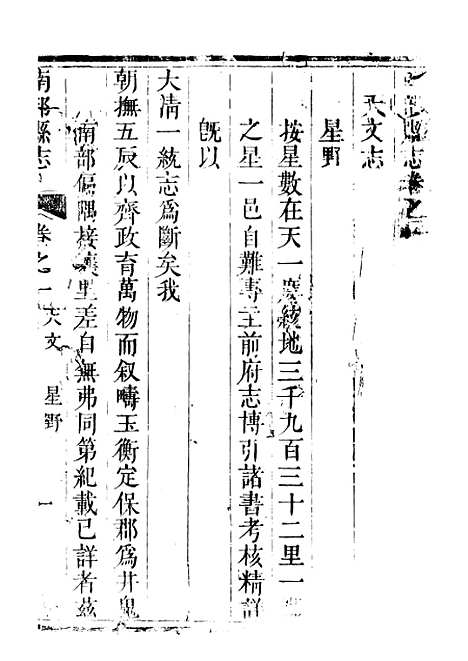 縣志卷之
天文志
星野
按星數在天一度絃地三千九百三十二里一
之星一邑自難專主前府志博引諸書考核精詳
旣以
大凊一統志爲斷矣我
朝撫五辰以齊政育萬物而叙疇玉衡定保郡爲井鬼
南部偏隅接壤里差自無弗同第紀載已詳者兹
南部縣志 卷之一 天文 星野 一